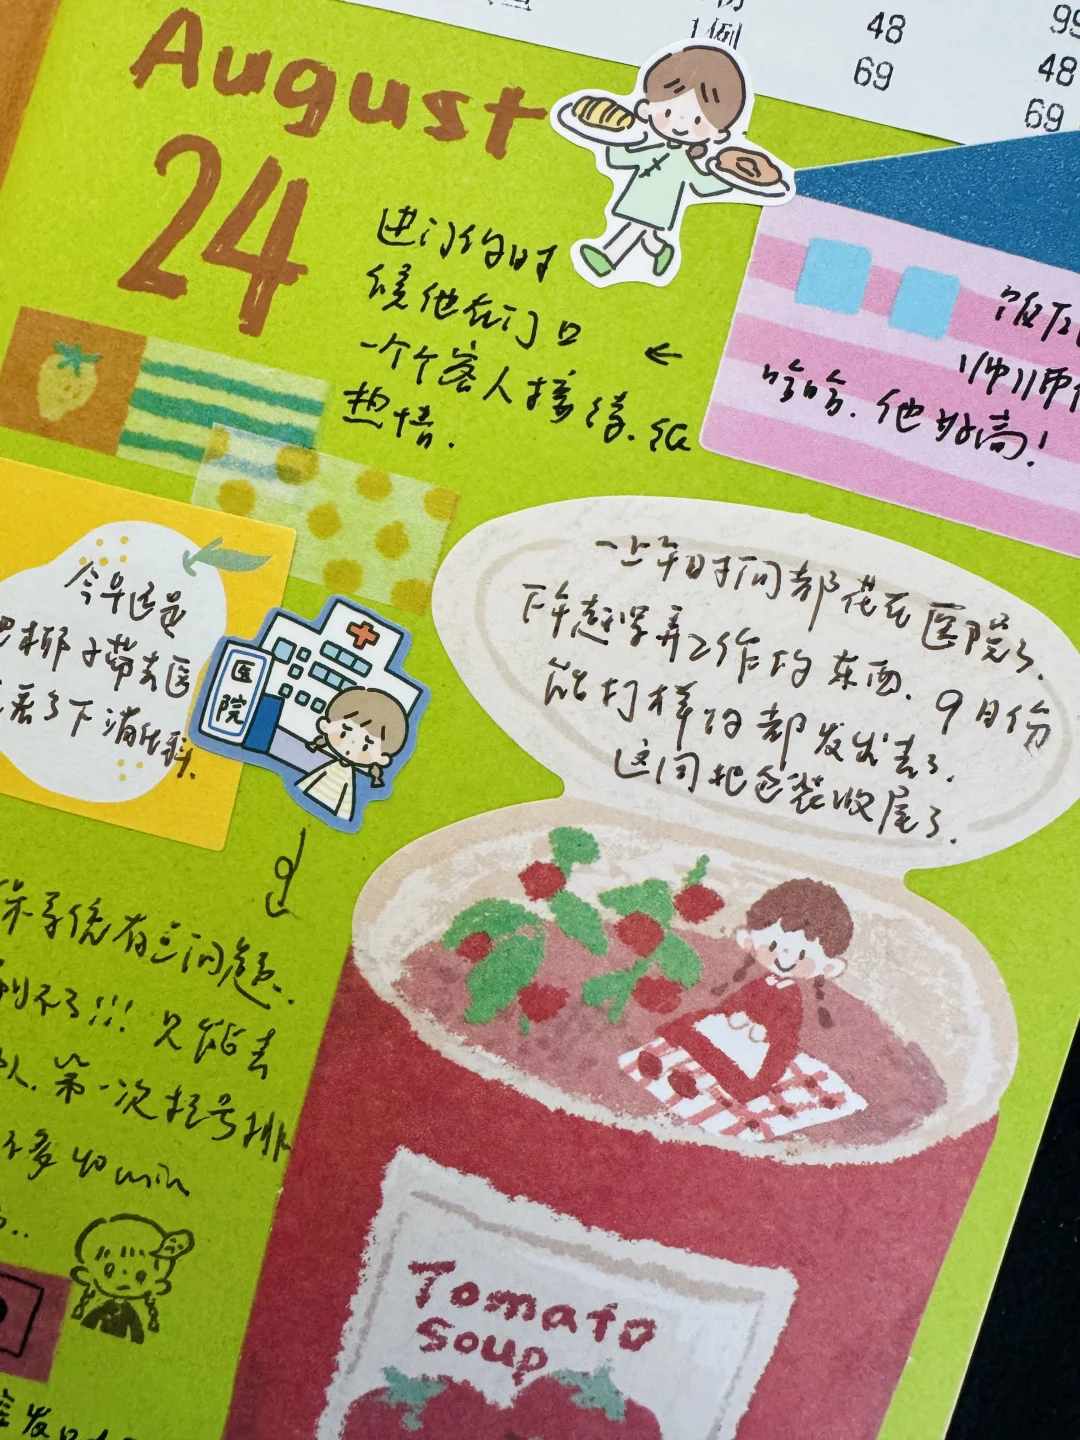 1例 48 99
69 48
69
August
24
进门的时
候他在门口
一个个客人接待.纸
热情.
←
饭店
哈哈.他好高!
今早还是
把椰子带去医
看了下消化科.
医院
一上午时间都花在医院了.
下午赶紧弄工作的东西. 9月份
能打样的都发出去了.
这间把包装收尾了.
系统有问题..
不了!!! 只能去
人.第一次挂号排
不多40min
Tomato
soup